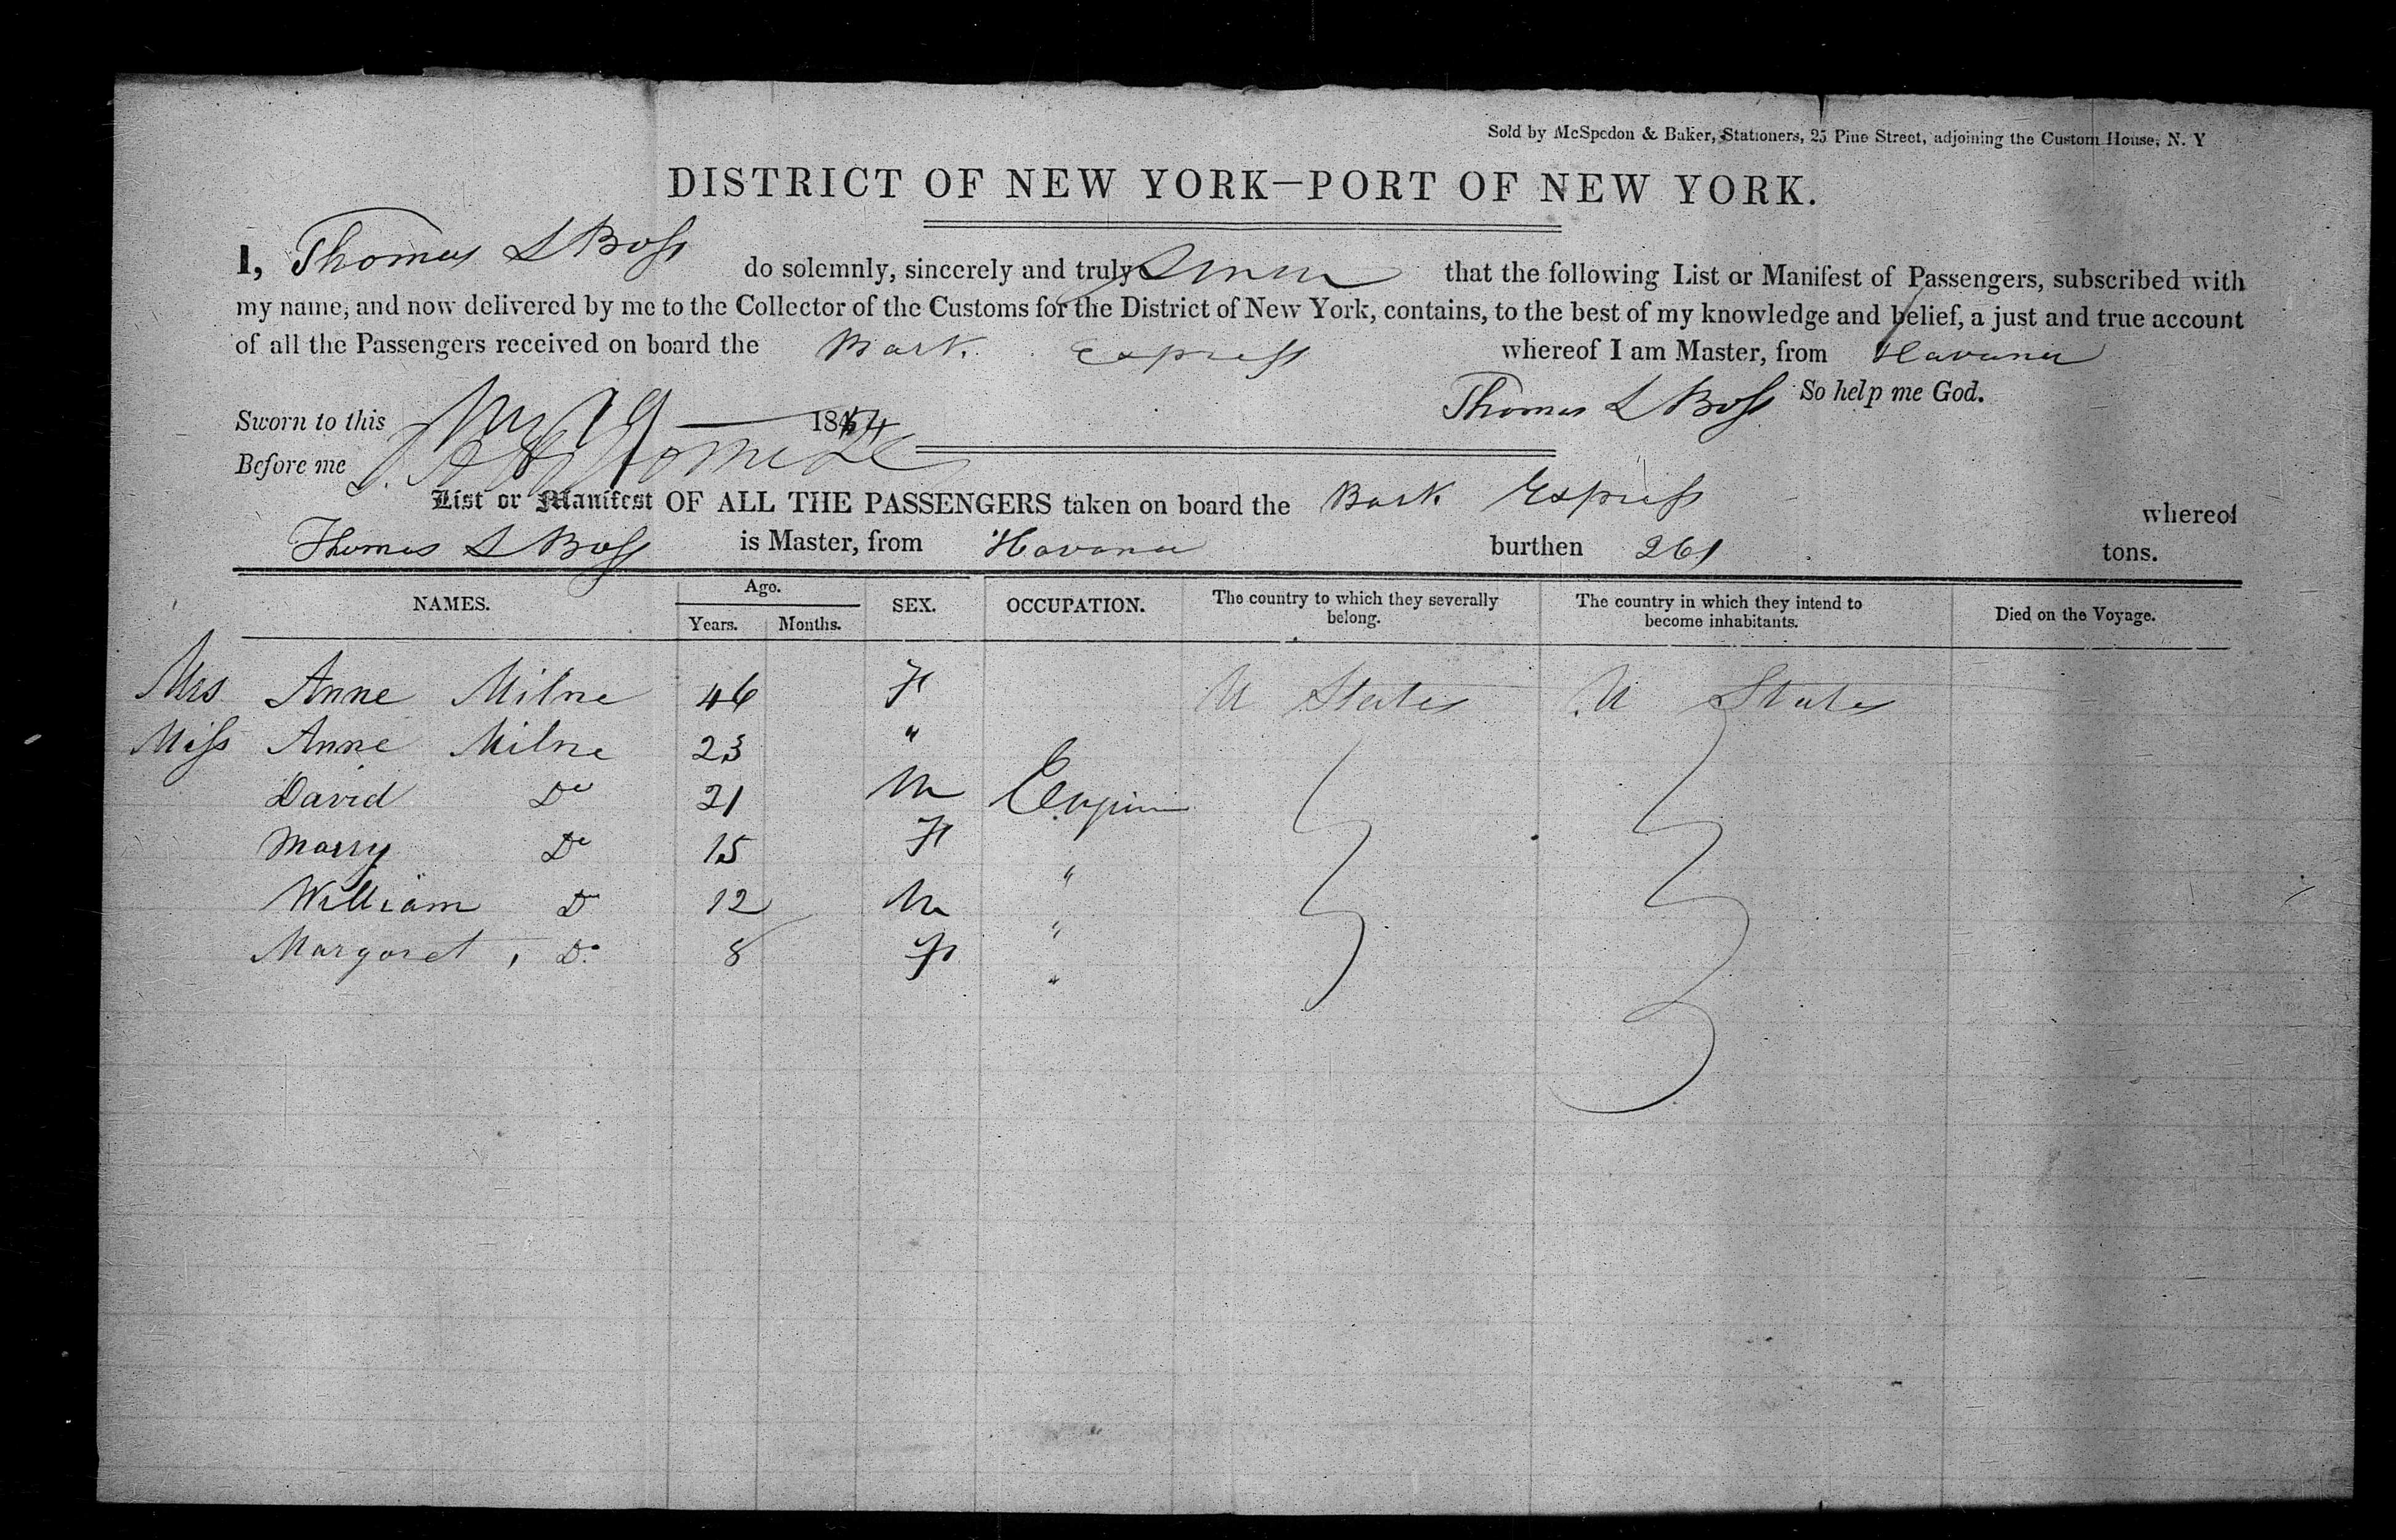 Sold by McSpedon & Baker, Stationers, 25 Pine Street, adjoining the Custom House, N. Y
DISTRICT OF NEW YORK—PORT OF NEW YORK.
I, Thomas S Boss do solemnly, sincerely and truly that the following List or Manifest of Passengers, subscribed with
my name, and now delivered by me to the Collector of the Customs for the District of New York, contains, to the best of my knowledge and belief, a just and true account
of all the Passengers received on board the Bark Express whereof I am Master, from Havana
Thomas S Boss So help me God.
Sworn to this 19 1844
Before me
List or Manifest OF ALL THE PASSENGERS taken on board the Bark Express whereof
Thomas S Boss is Master, from Havana burthen 261 tons.
NAMES. Age. Years. Months. SEX. OCCUPATION. The country to which they severally belong. The country in which they intend to become inhabitants. Died on the Voyage.
Mrs Anne Milne 46 F U States U States
Miss Anne Milne 23 "
David Do 21 M
Marry Do 15 F "
William D 12 M "
Margaret, Do 8 F "